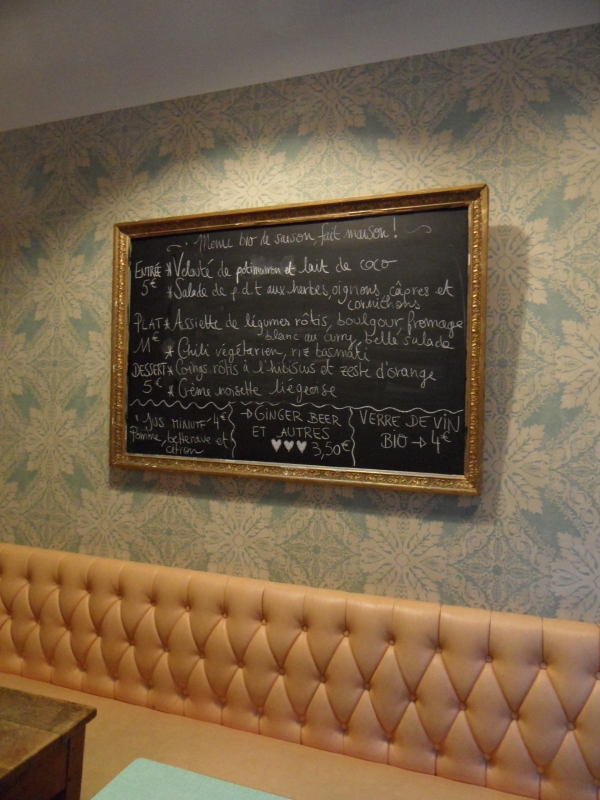 Menu bio de saison, fait maison !
ENTRÉE * Velouté de potimarron et lait de coco
5€ * Salade de p.d.t aux herbes, oignons, câpres et
cornichons
PLAT * Assiette de légumes rôtis, boulgour, fromage
blanc au curry, belle salade
11€ * Chili végétarien, riz basmati
DESSERT * Coings rôtis à l'hibiscus et zeste d'orange
5€ * Crème noisette liégeoise
* JUS MINUTE 4€
Pomme, betterave et
citron
→ GINGER BEER
ET AUTRES
♥♥♥ 3,50€
VERRE DE VIN
BIO → 4€